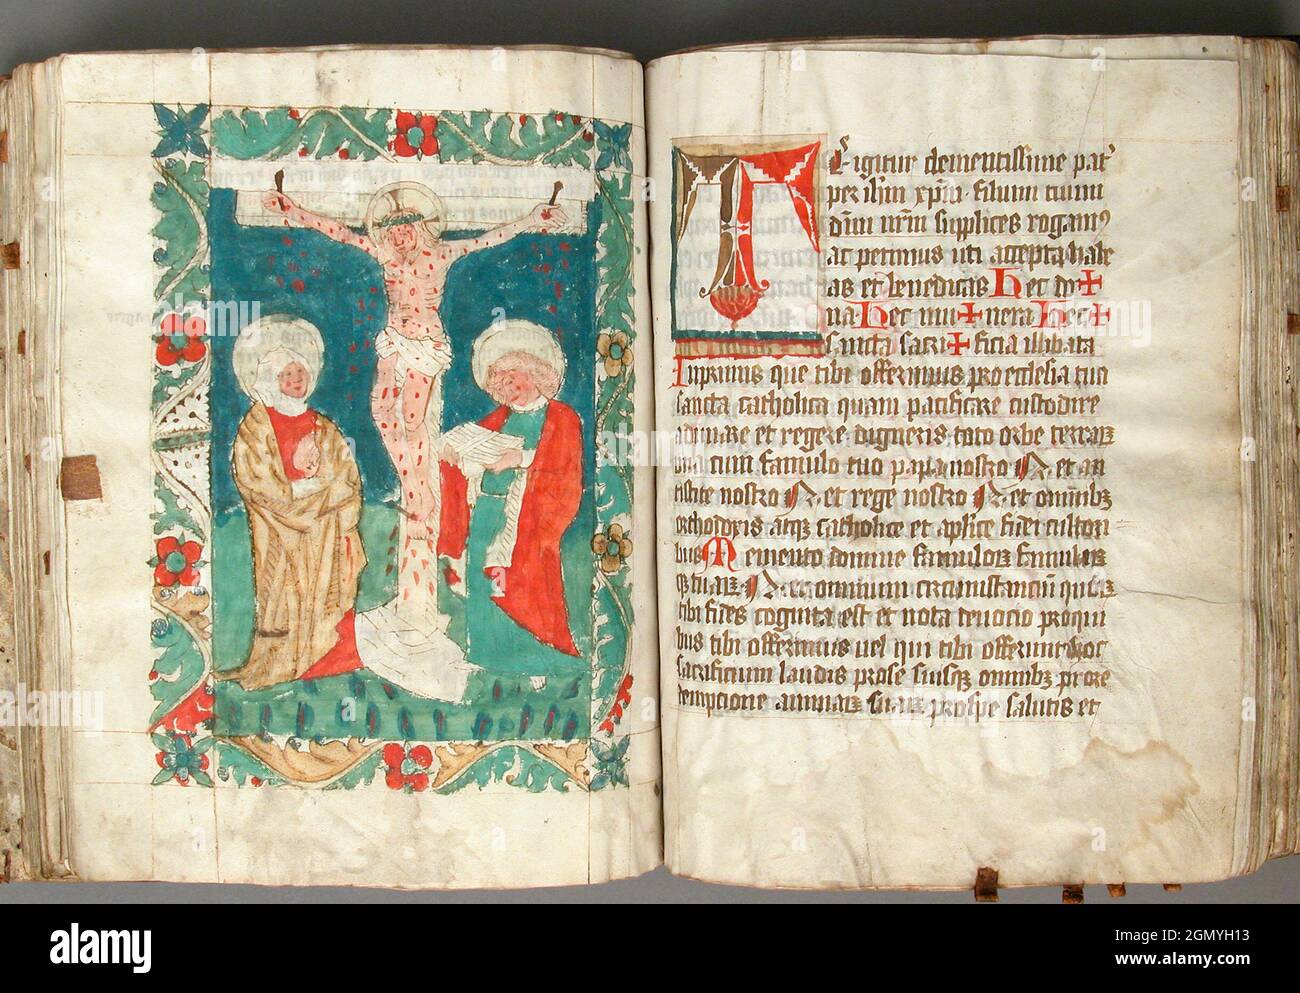 T E igitur clementissime pat᷒
per ihm xpm filium tuum
dnm nrm supplices rogam᷒
ac petimus uti accepta habe
as et benedicas Hec do✠
na Hec mu✠nera Hec✠
sancta sacri✠ficia illibata
Inprimis que tibi offerimus pro ecclesia tua
sancta catholica quam pacificare custodire
adunare et regere digneris toto orbe terraꝝ
una cum famulo tuo papa nostro N et an
tistite nostro N et rege nostro N et omnibꝫ
orthodoxis atqꝫ catholice et aplice fidei cultori
bus Memento domine famuloꝝ famulaꝝ
qꝫ tuaꝝ N et omnium circumstanciū quoꝝ
tibi fides cognita est et nota devocio pro qui
bus tibi offerimus vel qui tibi offerunt hoc
sacrificium laudis pro se suisqꝫ omnibꝫ pro re
demptione animaꝝ suaꝝ pro spe salutis et
alamy
Image ID: 2GMYH13
www.alamy.com